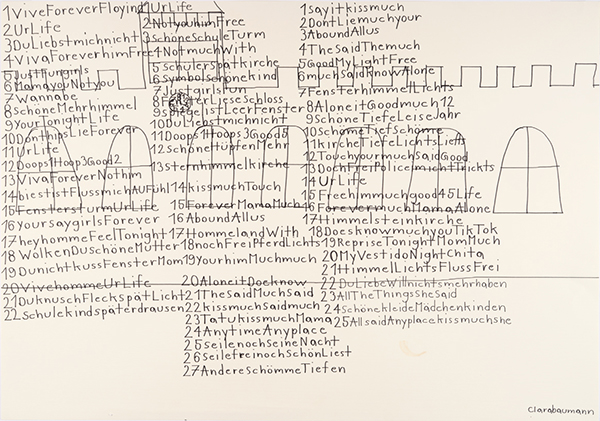 1ViveForeverFloying
2UrLife
3DuLiebstmichnicht
4VivaForeverhimFree
5Justfurgirls
6MamayouNotyou
7Wannabe
8SchöneMehrhimmel
9YourTonightLife
10DonthipsLieForever
11UrLife
12Ooops1Hoop3Good2
13VivaForeverNothim
14biestistFlussmichAuFühl
15FenstersturmUrLife
16yoursaygirlsForever
17heyhommeFeelTonight
18WolkenDuschöneMütter
19DunichtkussFensterMom
20VivehommeUrLife
21DuknuschFleckspätLicht
22Schulekindspäterdrausen
1UrLife
2NotyouhimFree
3SchöneSchuleTurm
4NotmuchWith
5Schülerspätkirche
6Symbolschönekind
7Justgirlsfun
8FensterLieseSchloss
9SpiegelistLeerFenster
10DuLiebstmichnicht
11Ooops1Hoops3Good5
12SchönehüpfenMehr
13Sternhimmelkirche
14kissmuchTouch
15ForeverMamaMuch
16AboundAllus
17HommelandWith
18nochFreiPferdLichts
19YourhimMuchmuch
20AloneitDoeknow
21TheSaidMuchSaid
22kissmuchsaidmuch
23TatukissmuchMama
24AnytimeAnyplace
25SeilenochseineNacht
26SeilefreinochSchönLiest
27AndereSchömmeTiefen
1Sayitkissmuch
2DontLiemuchyour
3AboundAllus
4TheSaidThemuch
5GoodMyLightFree
6muchSaidKnowAlone
7FensterhimmelLichts
8AloneitGoodmuch12
9SchöneTiefeLeiseJahr
10SchömeTiefeSchöme
11kircheTiefeLichtsLichts
12TouchyourmuchSaidGood
13DochFreiPolicemichTrickts
14UrLife
15Freehimmuchgood45Life
16ForevermuchMamaAlone
17Himmelsteinkirche
18DoesknowmuchyouTikTok
19RepriseTonightMomMuch
20MyVestidoNightChita
21HimmelLichtsFlussFrei
22DuLiebeWillnichtsmehrhaben
23AllTheThingsSheSaid
24SchönekleideMädchenkinden
25AllsaidAnyplacekissmuchshe
Clarabaumann